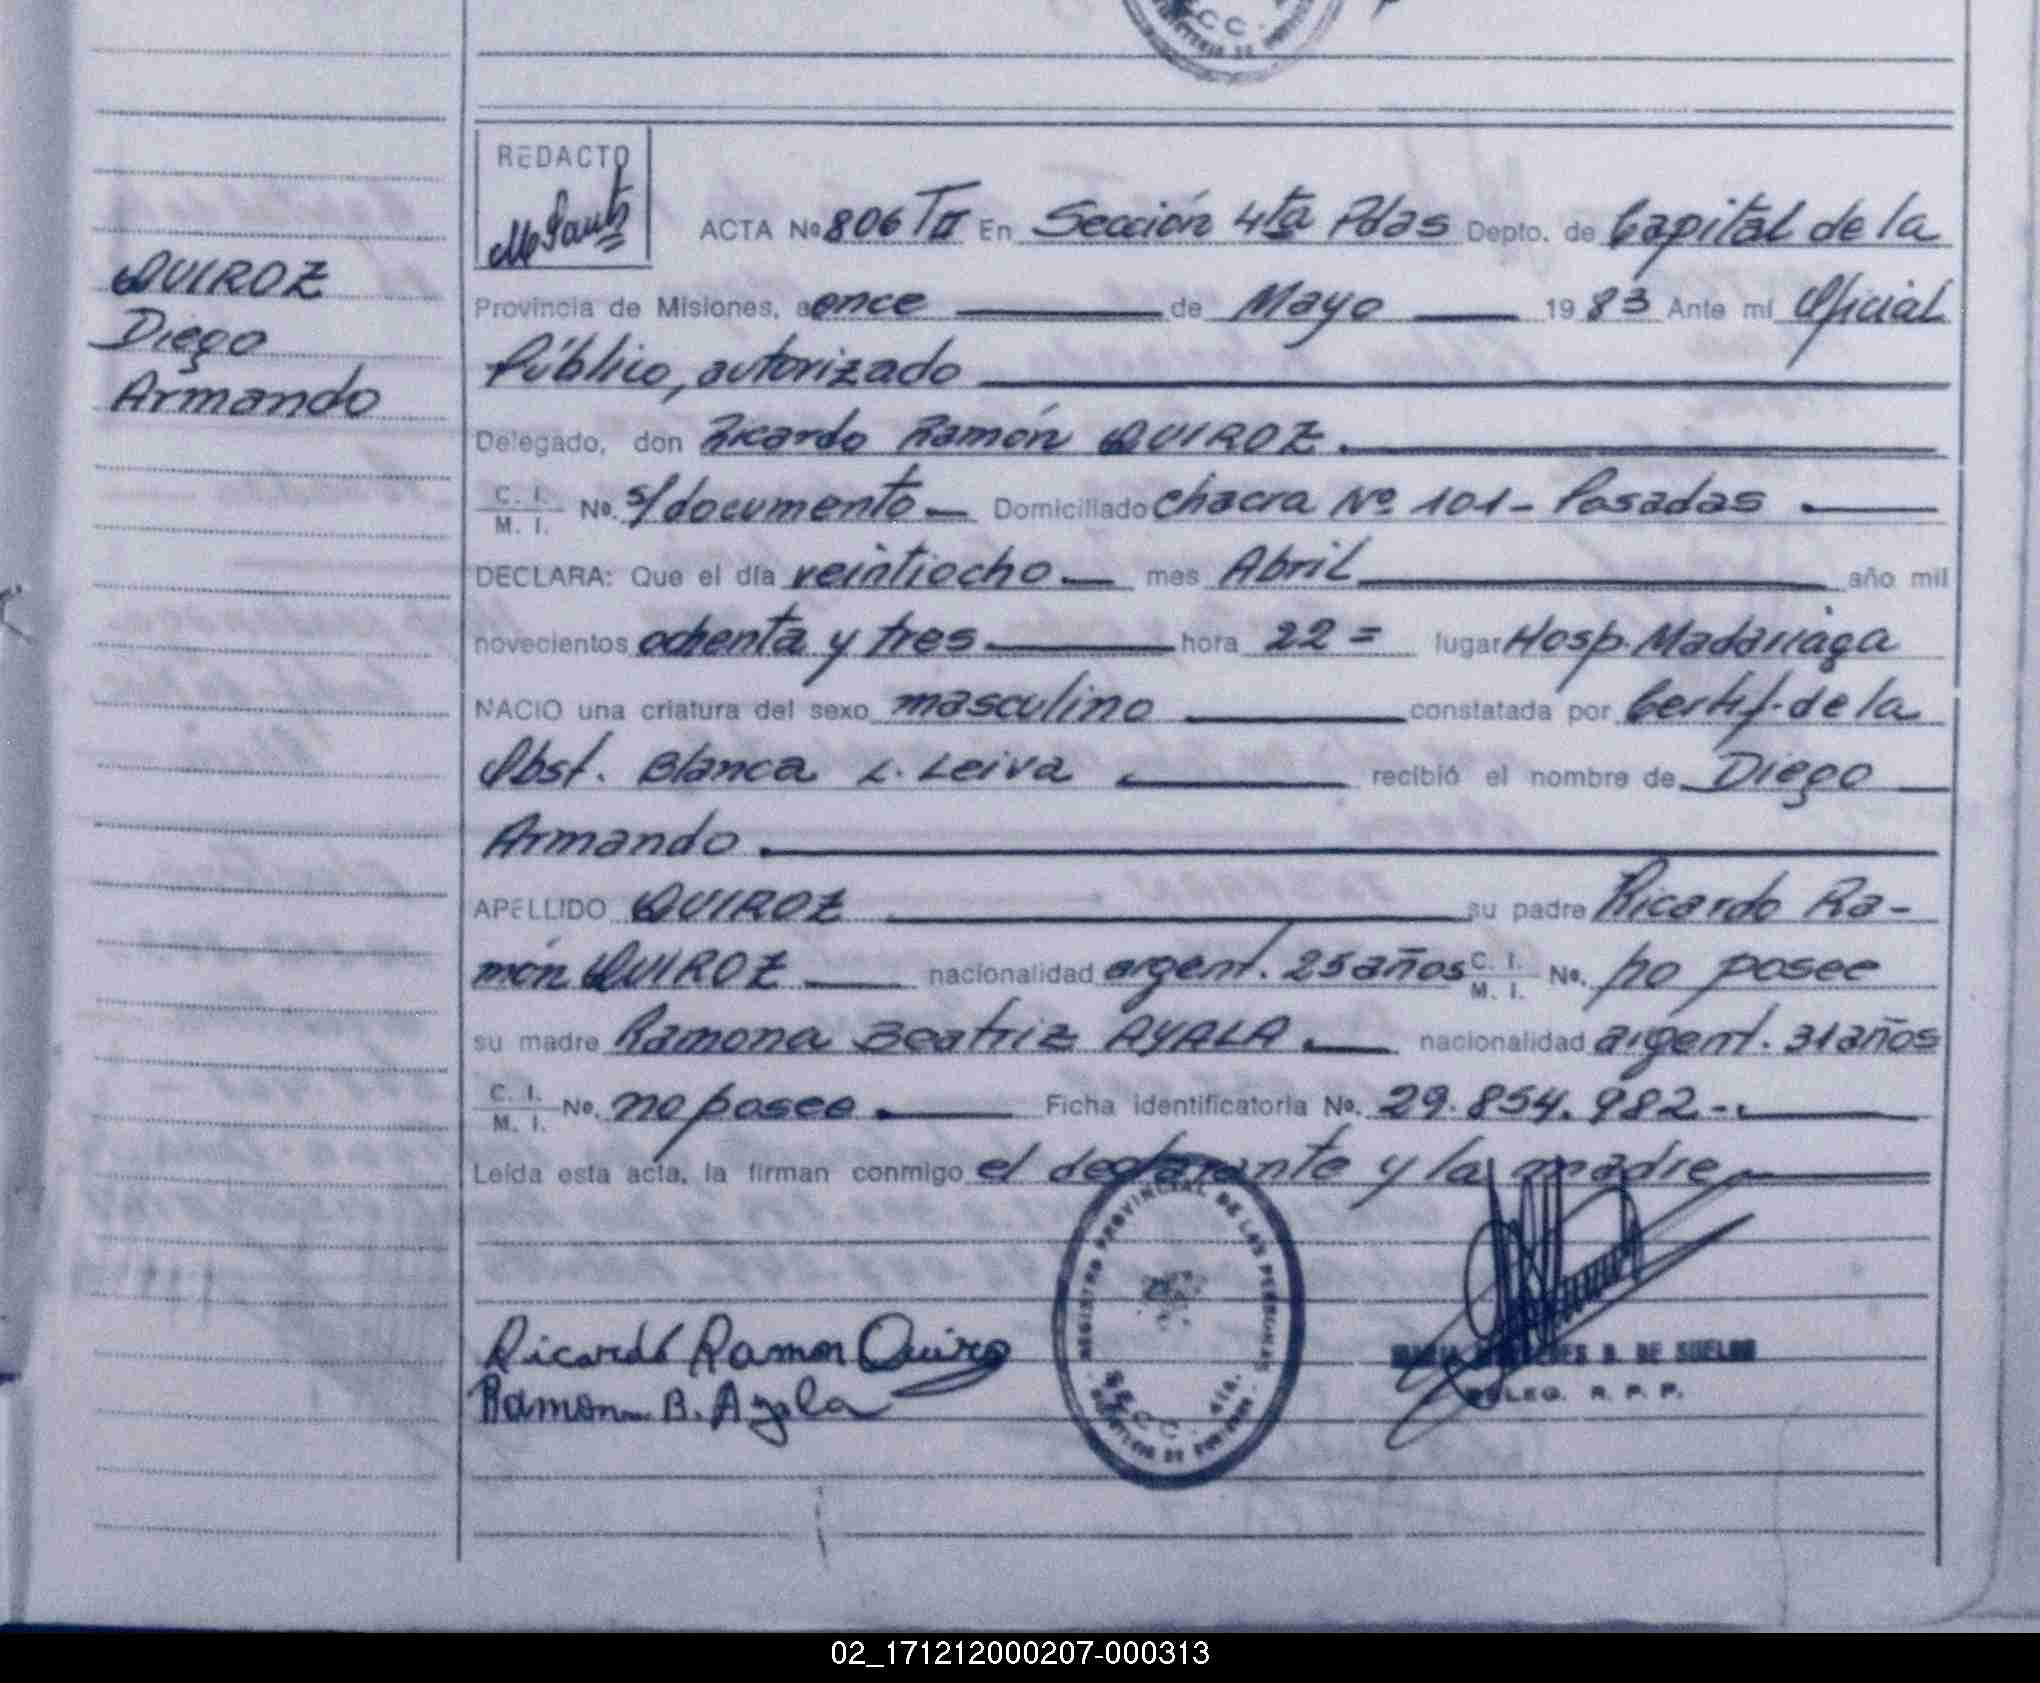 REDACTO
ACTA Nº 806 TII En Sección 4ta Pdas Depto. de Capital de la
QUIROZ
Diego
Armando
Provincia de Misiones, a once de Mayo 1983 Ante mí Oficial
Público, autorizado
Delegado, don Ricardo Ramón QUIROZ.
C. I. M. I. No. s/documento Domiciliado Chacra Nº 101 - Posadas
DECLARA: Que el día veintiocho mes Abril año mil
novecientos ochenta y tres hora 22 = lugar Hosp. Madariaga
NACIO una criatura del sexo masculino constatada por Certif. de la
Obst. Blanca L. Leiva recibió el nombre de Diego
Armando
APELLIDO QUIROZ su padre Ricardo Ra-
món QUIROZ nacionalidad argent. 25 años C. I. M. I. No. no posee
su madre Ramona Beatriz AYALA nacionalidad argent. 31 años
C. I. M. I. No. no posee Ficha identificatoria No. 29.854.982-.
Leída esta acta, la firman conmigo el declarante y la madre
REGISTRO PROVINCIAL DE LAS PERSONAS
SECC. 4ta.
Ricardo Ramon Quiroz
Ramona B. Ayala
B. DE SUELDO
DELEG. R. P. P.
02_171212000207-000313